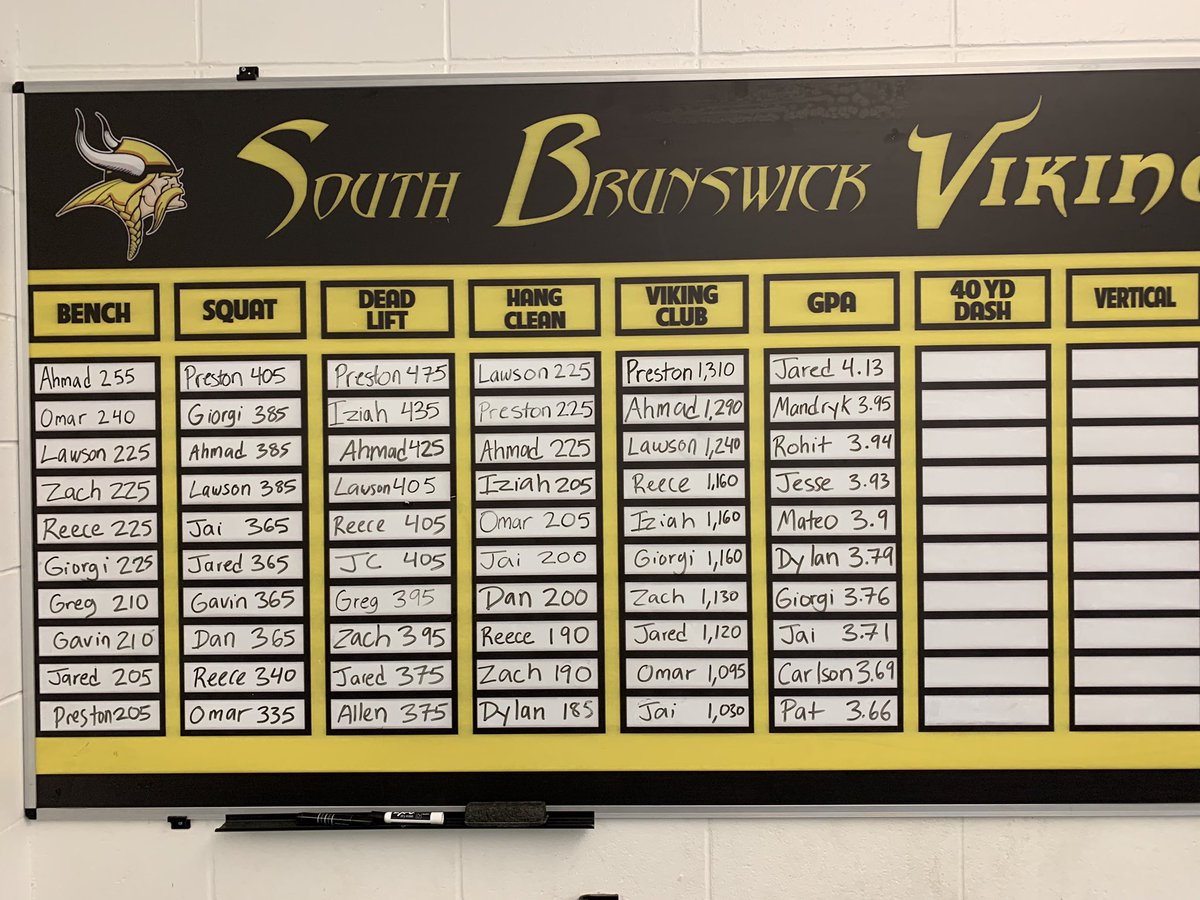 SOUTH BRUNSWICK VIKING
BENCH SQUAT DEAD LIFT HANG CLEAN VIKING CLUB GPA 40 YD DASH VERTICAL
Ahmad 255 Preston 405 Preston 475 Lawson 225 Preston 1,310 Jared 4.13
Omar 240 Giorgi 385 Iziah 435 Preston 225 Ahmad 1,290 Mandryk 3.95
Lawson 225 Ahmad 385 Ahmad 425 Ahmad 225 Lawson 1,240 Rohit 3.94
Zach 225 Lawson 385 Lawson 405 Iziah 205 Reece 1,160 Jesse 3.93
Reece 225 Jai 365 Reece 405 Omar 205 Iziah 1,160 Mateo 3.9
Giorgi 225 Jared 365 JC 405 Jai 200 Giorgi 1,160 Dylan 3.79
Greg 210 Gavin 365 Greg 395 Dan 200 Zach 1,130 Giorgi 3.76
Gavin 210 Dan 365 Zach 395 Reece 190 Jared 1,120 Jai 3.71
Jared 205 Reece 340 Jared 375 Zach 190 Omar 1,095 Carlson 3.69
Preston 205 Omar 335 Allen 375 Dylan 185 Jai 1,030 Pat 3.66